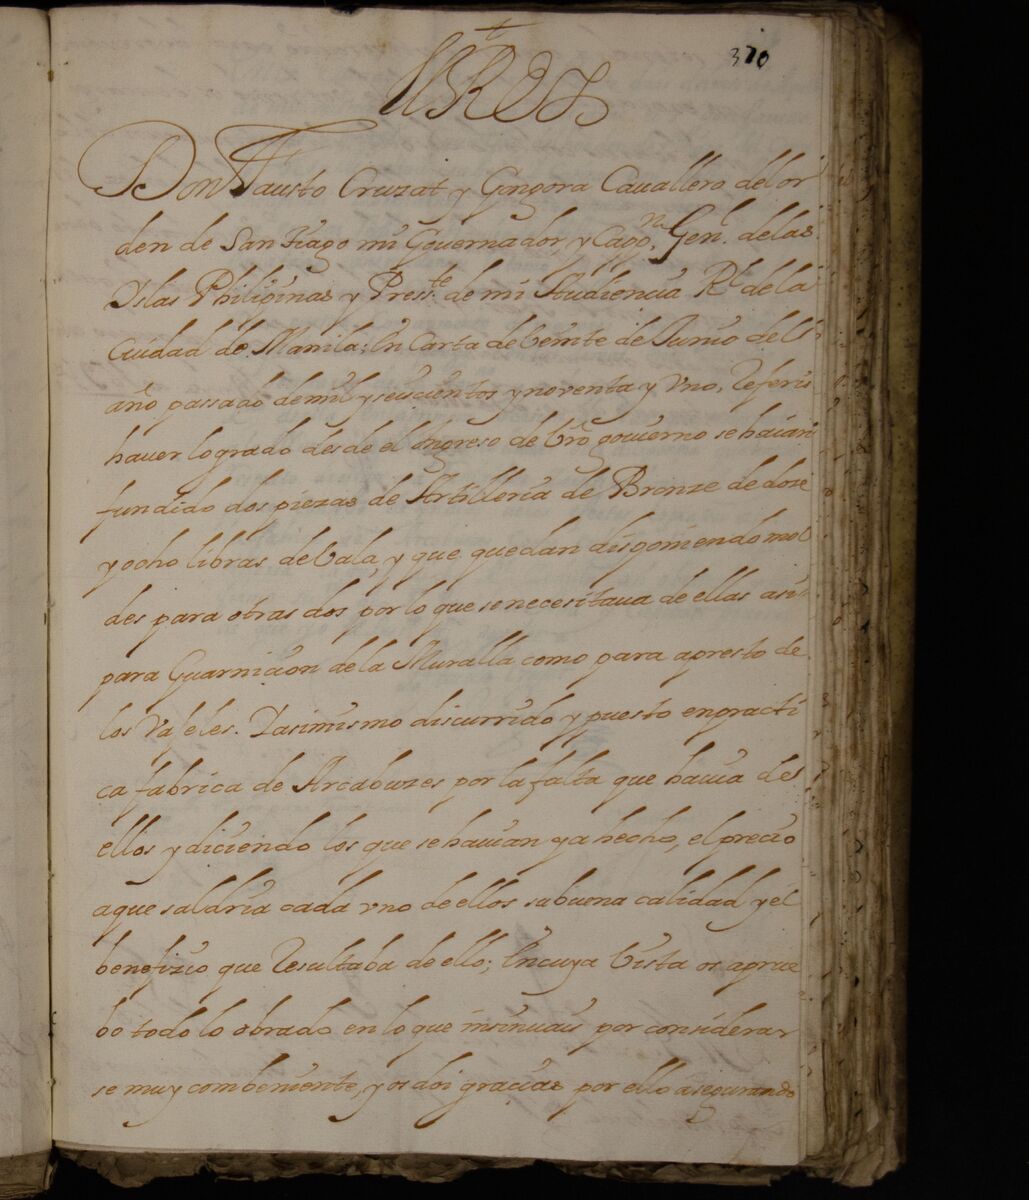 370
El Rey
Don Fausto Cruzat y Gongora Cauallero del or
den de San Tiago mi Gouernador y Cappn. Genl. de las
Yslas Philipinas y Presste. de mi Audiencia Rl. de la
Ciudad de Manila; En Carta de Veinte de Junio del
año passado de mil y seiscientos y nouenta y Vno, Referis
hauer logrado desde el Ingreso de Vro gouierno se haian
fundido dos piezas de Artilleria de Bronze de doze
y ocho libras de Vala, y que quedan disponiendo mol
des para otras dos por lo que se necesitaua de ellas asi
para Guarnicion de la Muralla como para apresto de
los Vajeles. Y asimismo discurrido y puesto en practi
ca fabrica de Arcabuzes por la falta que hauia de
ellos y diciendo los que se hauian ya hecho, el precio
a que saldria cada vno de ellos su buena calidad y el
benefizio que Resultaba de ello; En cuya Vista os aprue
bo todo lo obrado en lo que insinuais por considerar
se muy combeniente, y os doi gracias por ello asegurando